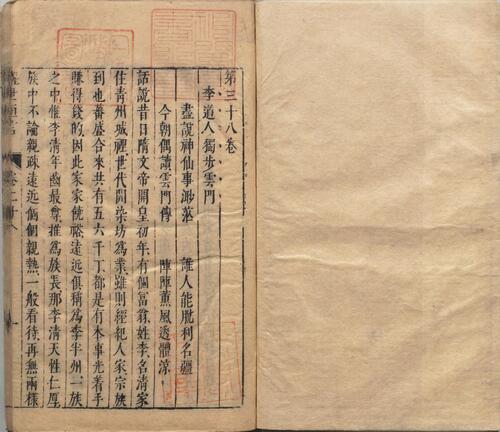 第三十八卷
李道人獨步雲門
盡說神仙事渺茫 誰人能脫利名疆
今朝偶讀雲門傳 陣陣薰風透體涼
話說昔日隋文帝開皇初年有個富翁姓李名清家
住青州城裡世代開染坊爲業雖則經紀人家宗族
到也蕃盛合來共有五六千丁都是有本事光着手
賺得錢的因此家家饒裕遠近俱稱爲李半州一族
之中惟李清年齒最尊推爲族長那李清天性仁厚
族中不論親疎遠近個個親熱一般看待再無兩樣